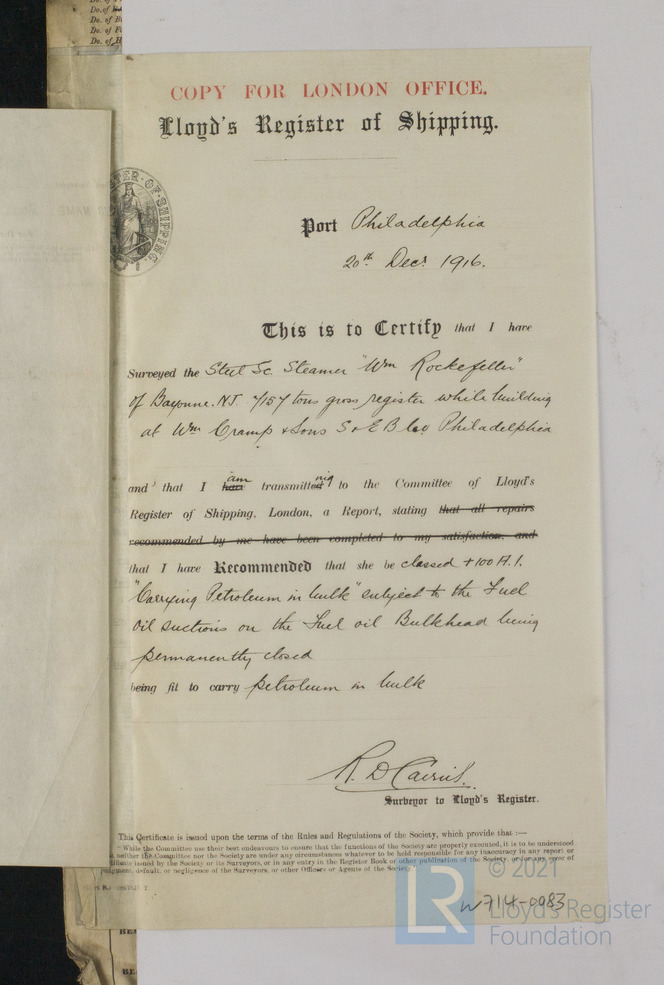 Do. of
Do. of B
Do. of F
Do. of H
COPY FOR LONDON OFFICE.
Lloyd's Register of Shipping.
TER·OF·SHIPPING
Port Philadelphia
20th Decr 1916.
This is to Certify that I have
Surveyed the Steel Sc. Steamer "Wm Rockefeller"
of Bayonne. NJ 7157 tons gross register while building
at Wm Cramp & Sons S & E B Co Philadelphia
am ing
and that I have transmitted to the Committee of Lloyd's
Register of Shipping, London, a Report, stating that all repairs
recommended by me have been completed to my satisfaction, and
that I have Recommended that she be classed +100 A.1.
"Carrying Petroleum in bulk" subject to the Fuel
oil suctions on the Fuel oil Bulkhead being
permanently closed
being fit to carry petroleum in bulk
R. D. Cairns.
Surveyor to Lloyd's Register.
This Certificate is issued upon the terms of the Rules and Regulations of the Society, which provide that :—
"While the Committee use their best endeavours to ensure that the functions of the Society are properly executed, it is to be understood
neither the Committee nor the Society are under any circumstances whatever to be held responsible for any inaccuracy in any report or
issued by the Society or its Surveyors, or in any entry in the Register Book or other publication of the Society, or for any error of
judgment, default, or negligence of the Surveyors, or other Officers or Agents of the Society."
© 2021
W714-0083
LR Lloyd's Register
Foundation
BE
BE